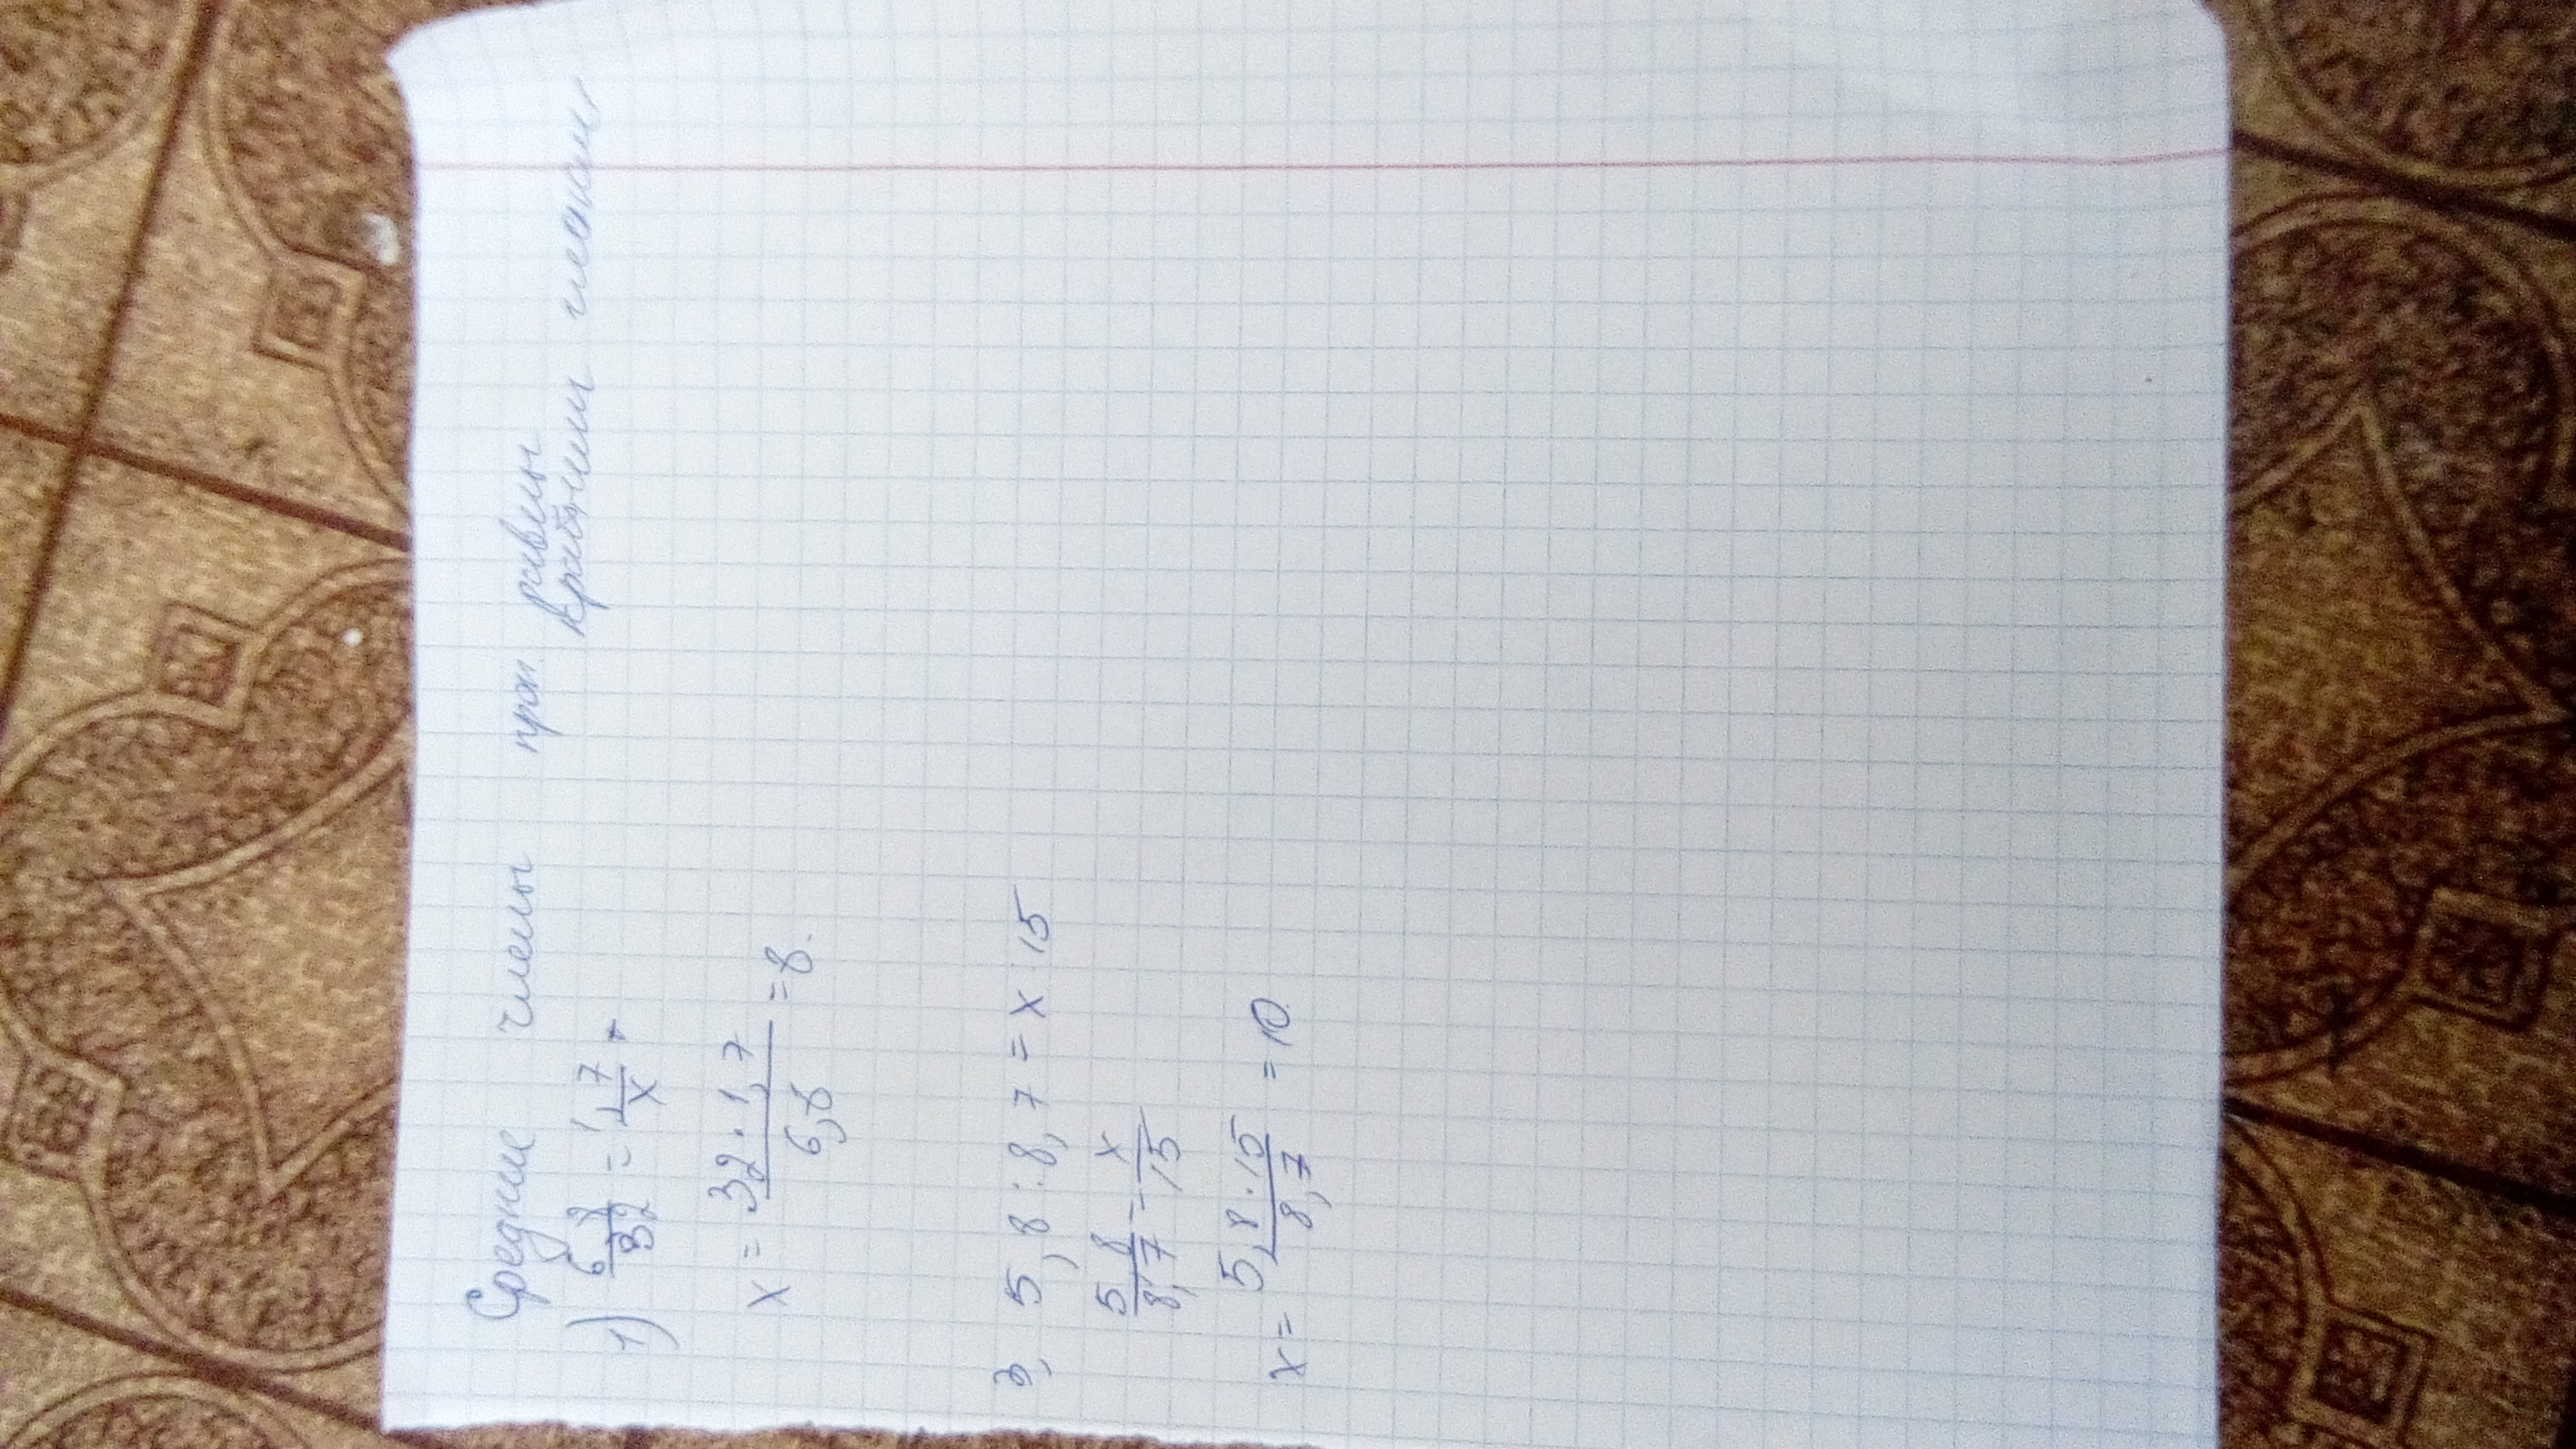 Средние члены проп равны
крайним членам
1) 6,8/32 = 1,7/x
x = 32·1,7/6,8 = 8.
3) 5,8 : 8,7 = x 15
5,8/8,7 = x/15
x = 5,8·15/8,7 = 10